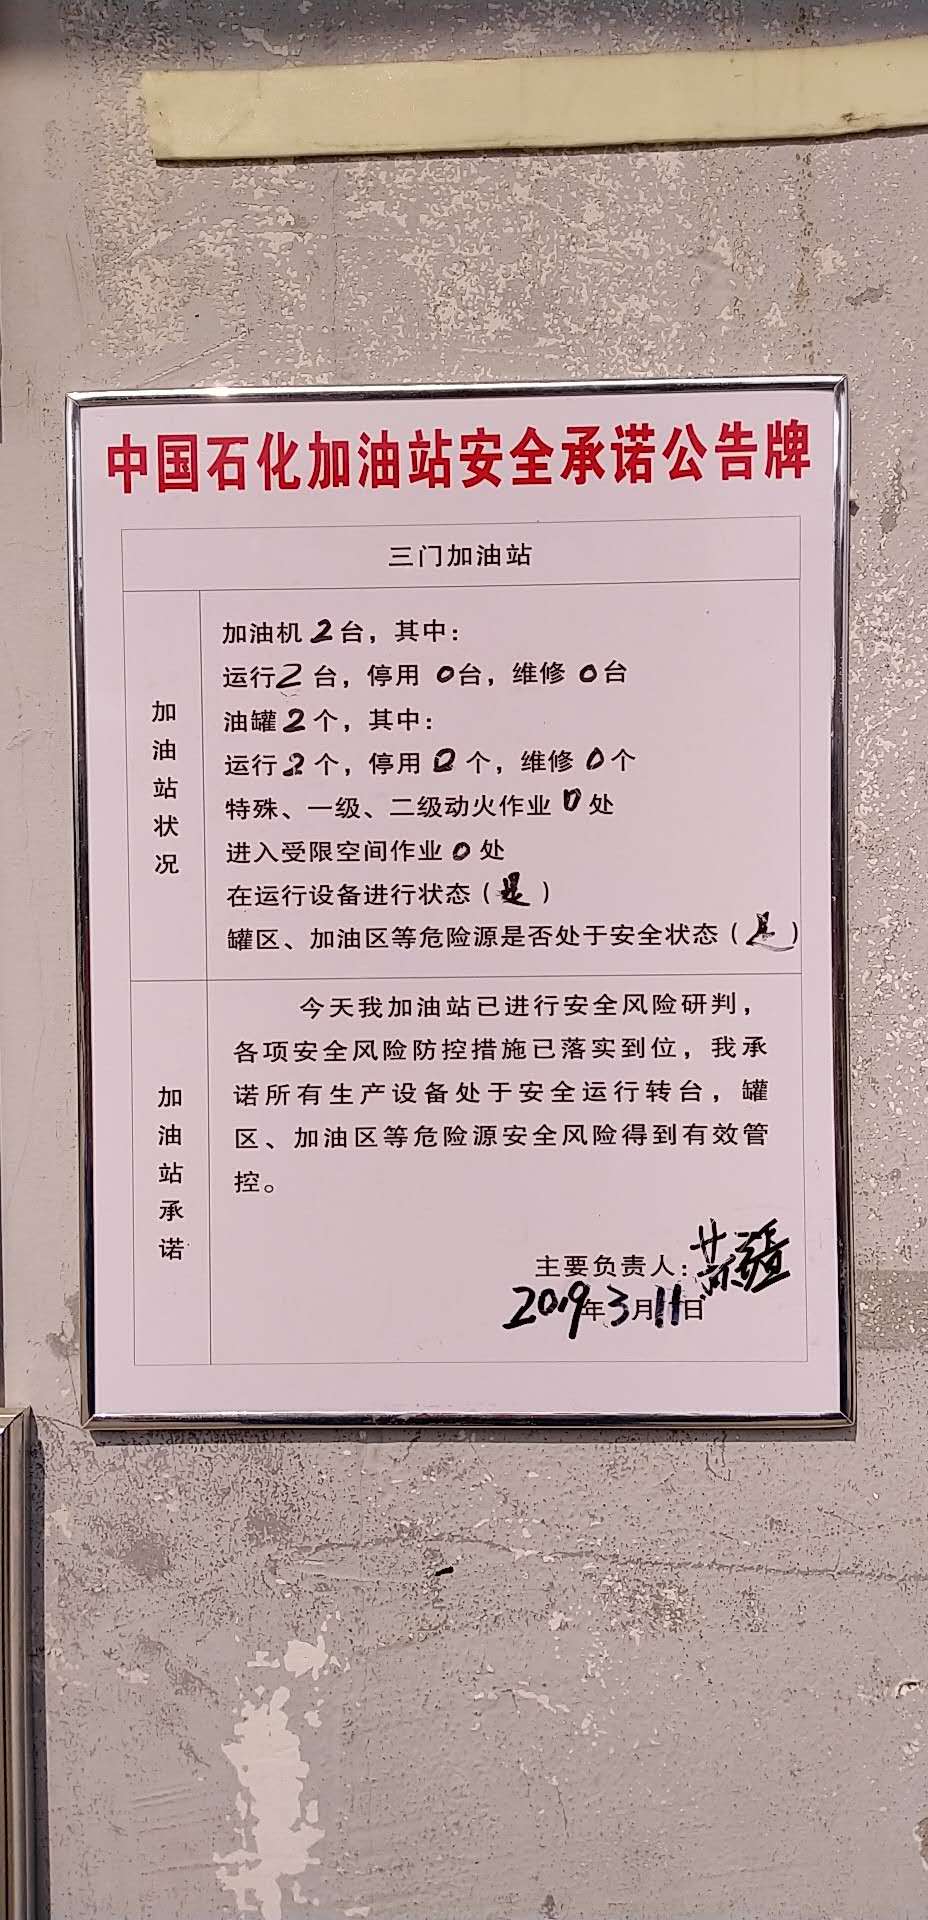 中国石化加油站安全承诺公告牌
三门加油站
加油站状况
加油机2台，其中：
运行2台，停用0台，维修0台
油罐2个，其中：
运行2个，停用0个，维修0个
特殊、一级、二级动火作业0处
进入受限空间作业0处
在运行设备进行状态（是）
罐区、加油区等危险源是否处于安全状态（是）
加油站承诺
今天我加油站已进行安全风险研判，
各项安全风险防控措施已落实到位，我承
诺所有生产设备处于安全运行转台，罐
区、加油区等危险源安全风险得到有效管
控。
主要负责人：
2019年3月11日